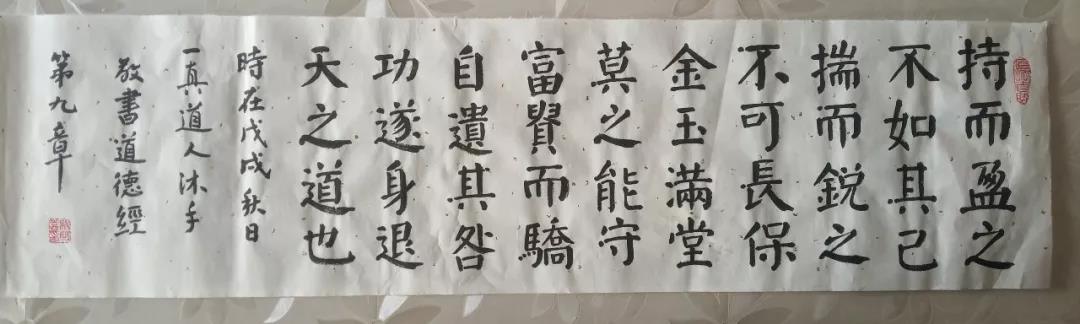 持而盈之
不如其已
揣而鋭之
不可長保
金玉滿堂
莫之能守
富貴而驕
自遺其咎
功遂身退
天之道也
時在戊戌秋日
一真道人沐手
敬書道德經
第九章